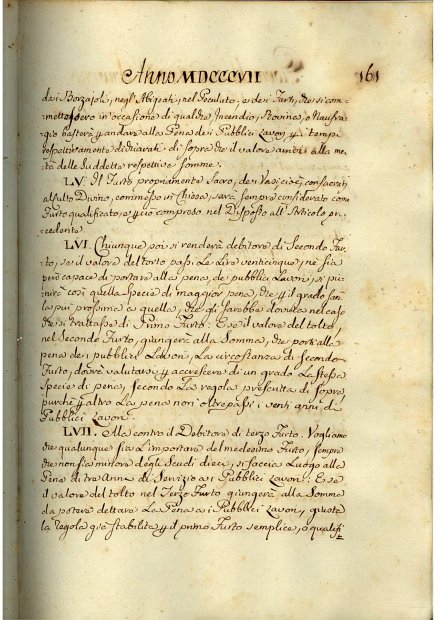 Anno MDCCCVII 161
dei Borzajoli, negl'Abigeati, nel Peculato, e dei Furti, che si com-
mettessero in occasione di qualche Incendio, Rovina, o Naufra-
gio basterà p andare alla Pena dei Pubblici Lavori p i tempi
respettivamente dichiarati di sopra che il valore arrivi alla me-
tà delle Suddette respettive Somme.
LV. Il Furto propriamente Sacro, dei Vasi cioè consacrati
al Culto Divino, commesso in Chiesa, sarà sempre considerato come
Furto qualificato, e p ciò compreso nel Disposto all'Articolo pre-
cedente
LVI. Chiunque poi si renderà debitore di Secondo Fur-
to, se il valore del tolto passi Le Lire venticinque, nè sia
però capace di portare alla pena de pubblici Lavori, si pu-
nirà con quella Specie di maggior pena, che p il grado sarà
la più prossima a quella, che gli sarebbe dovuta nel caso
che si trattasse di Primo Furto: E se il valore del tolto,
nel Secondo Furto, giungerà alla Somma, che porti alla
pena dei pubblici Lavori, La circostanza di Secondo
Furto, dovrà valutarsi p accrescere di un grado La stessa
specie di pena, secondo La regola prescritta di sopra,
purchè p altro La pena non oltrepassi i venti anni di
Pubblici Lavori.
LVII. Ma contro il Debitore di terzo Furto, Vogliamo
che qualunque sia L'importare del medesimo Furto, sempre
che non sia minore degli Scudi dieci, si faccia Luogo alla
Pena di tre Anni di Servizio a i Pubblici Lavori: E se
il valore del tolto nel Terzo Furto giungerà alla Somma
da potere dettare La Pena a i Pubblici Lavori, giusta
la Regola già stabilita p il primo Furto semplice, o qualifi-